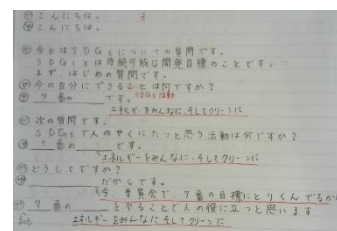 3
こんにちは。
こんにちは。
今日はSDGsについての質問です。
SDGsとは持続可能な開発目標のことです。
まず、はじめの質問です。
今の自分にできることは何ですか?
SDGs活動
7番の です。
エネルギーをみんなに、そしてクリーンに
次の質問です。
SDGsで人のやくにたつと思う活動は何ですか?
7番の です。
エネルギーをみんなに、そしてクリーンに
どうしてですか?
だからです。
今、委員会で、7番の目標にとりくんでるから
7番の をやることで人の役に立つと思います
エネルギーをみんなに そしてクリーンに